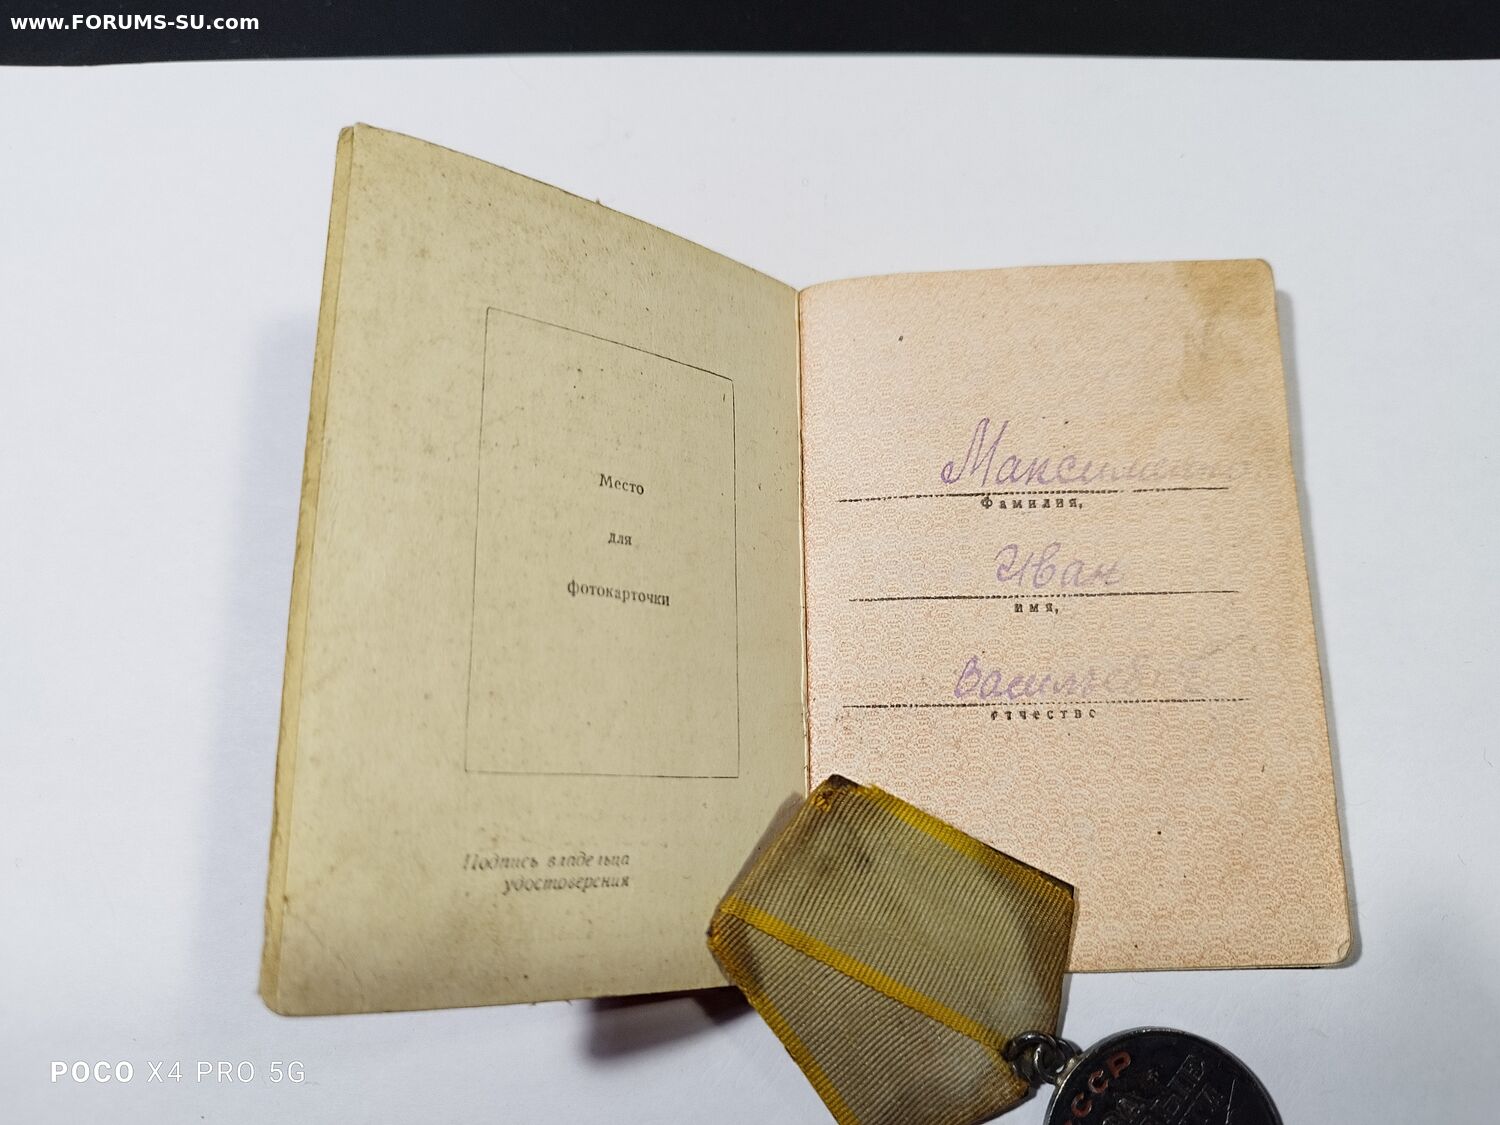 www.FORUMS-SU.com
Место
для
фотокарточки
Подпись владельца
удостоверения
Фамилия,
Иван
имя,
Васильевич
отчество
СССР
POCO X4 PRO 5G